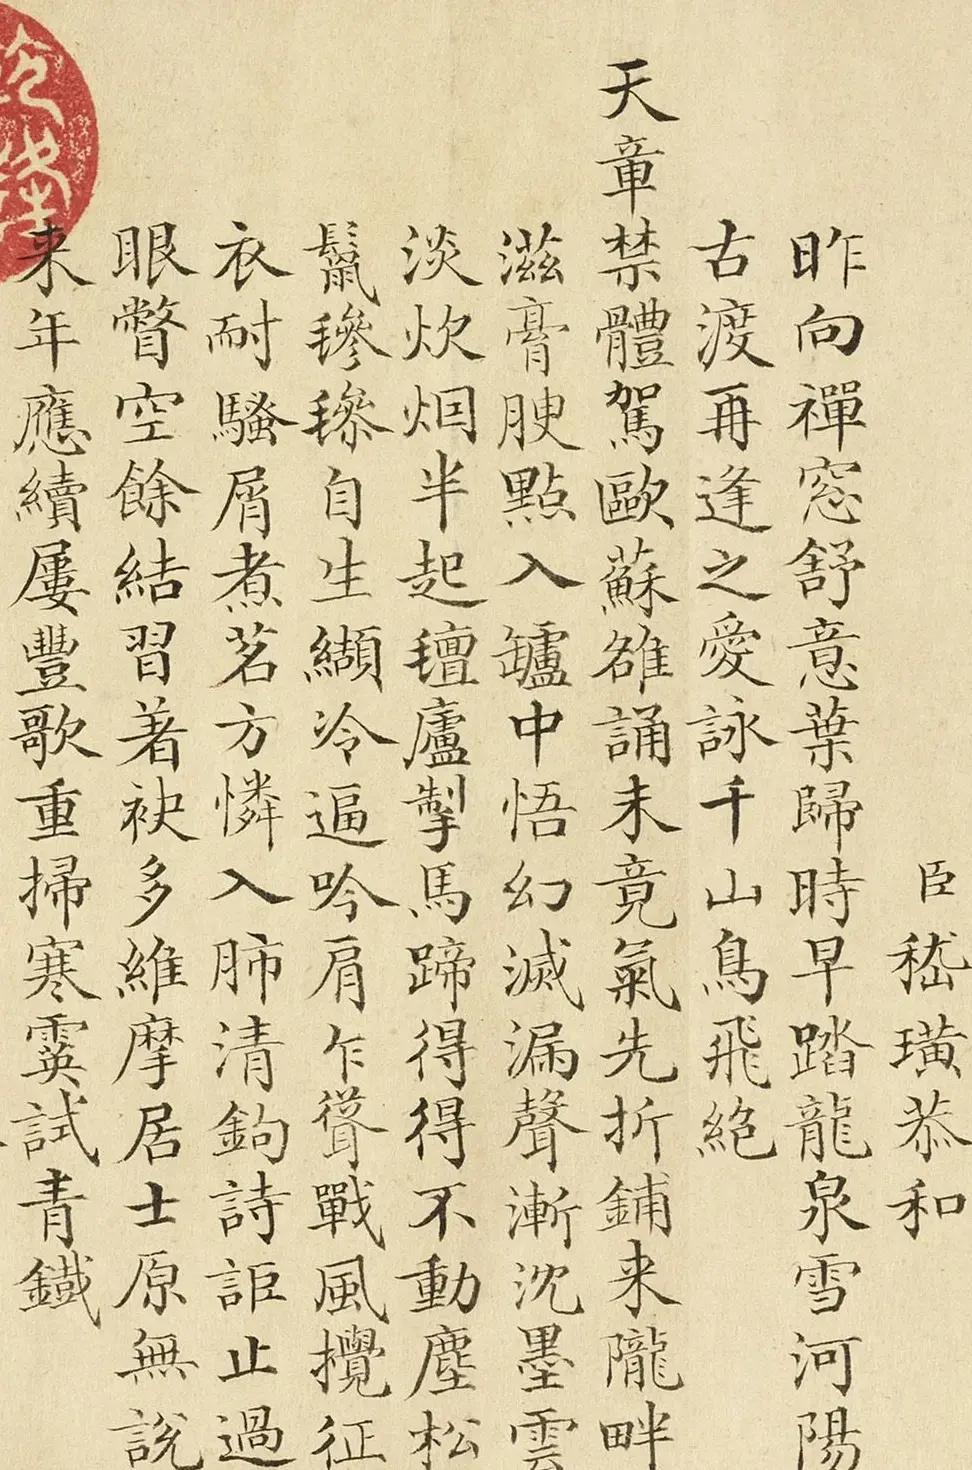 臣嵇璜恭和
昨向禪窓舒意葉歸時早踏龍泉雪河陽
古渡再逢之愛詠千山鳥飛絕
天章禁體駕歐蘇雒誦未竟氣先折鋪来隴畔
滋膏腴點入罏中悟幻滅漏聲漸沈墨雲
淡炊烟半起氊廬掣馬蹄得得不動塵松
鬣毿毿自生纈冷逼吟肩乍聳戰風攪征
衣耐騷屑煮茗方憐入肺清鉤詩詎止過
眼瞥空餘結習著袂多維摩居士原無說
来年應續屢豐歌重掃寒霙試青鐵